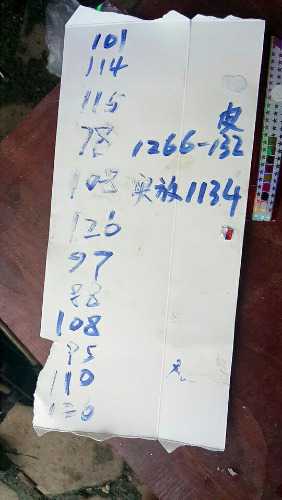 101
114
115
78
108
126
97
88
108
95
110
120
皮
1266-132
实放1134